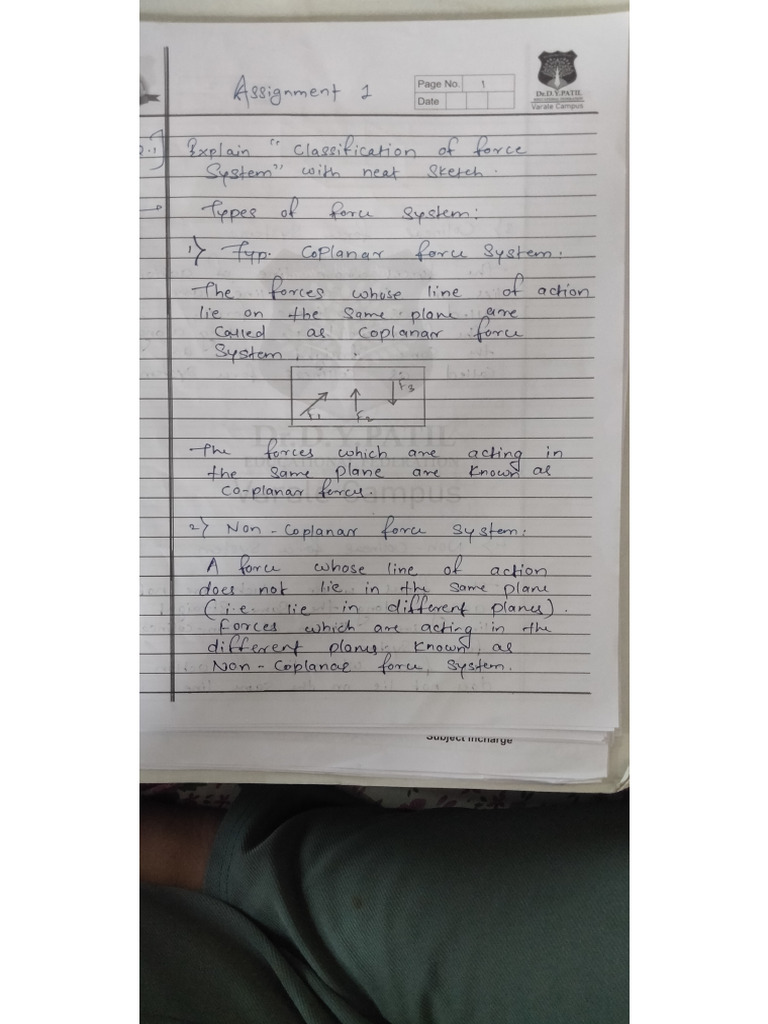 Assignment 1
Page No. 1
Date
Dr.D.Y.PATIL
Varale Campus
Q.1] Explain "Classification of force
System" with neat Sketch.
→ Types of force system:
1) Typ. CoPlanar force System:
The forces whose line of action
lie on the same plane are
Called as Coplanar force
System.
F1 F2 F3
The forces which are acting in
the same plane are known as
co-planar forces.
2) Non-Coplanar force system:
A force whose line of action
does not lie in the same plane
(i.e. lie in different planes).
forces which are acting in the
different planes known, as
Non-Coplanar force, System.
Dr.D.Y.PATIL
Varale Campus
Subject Incharge